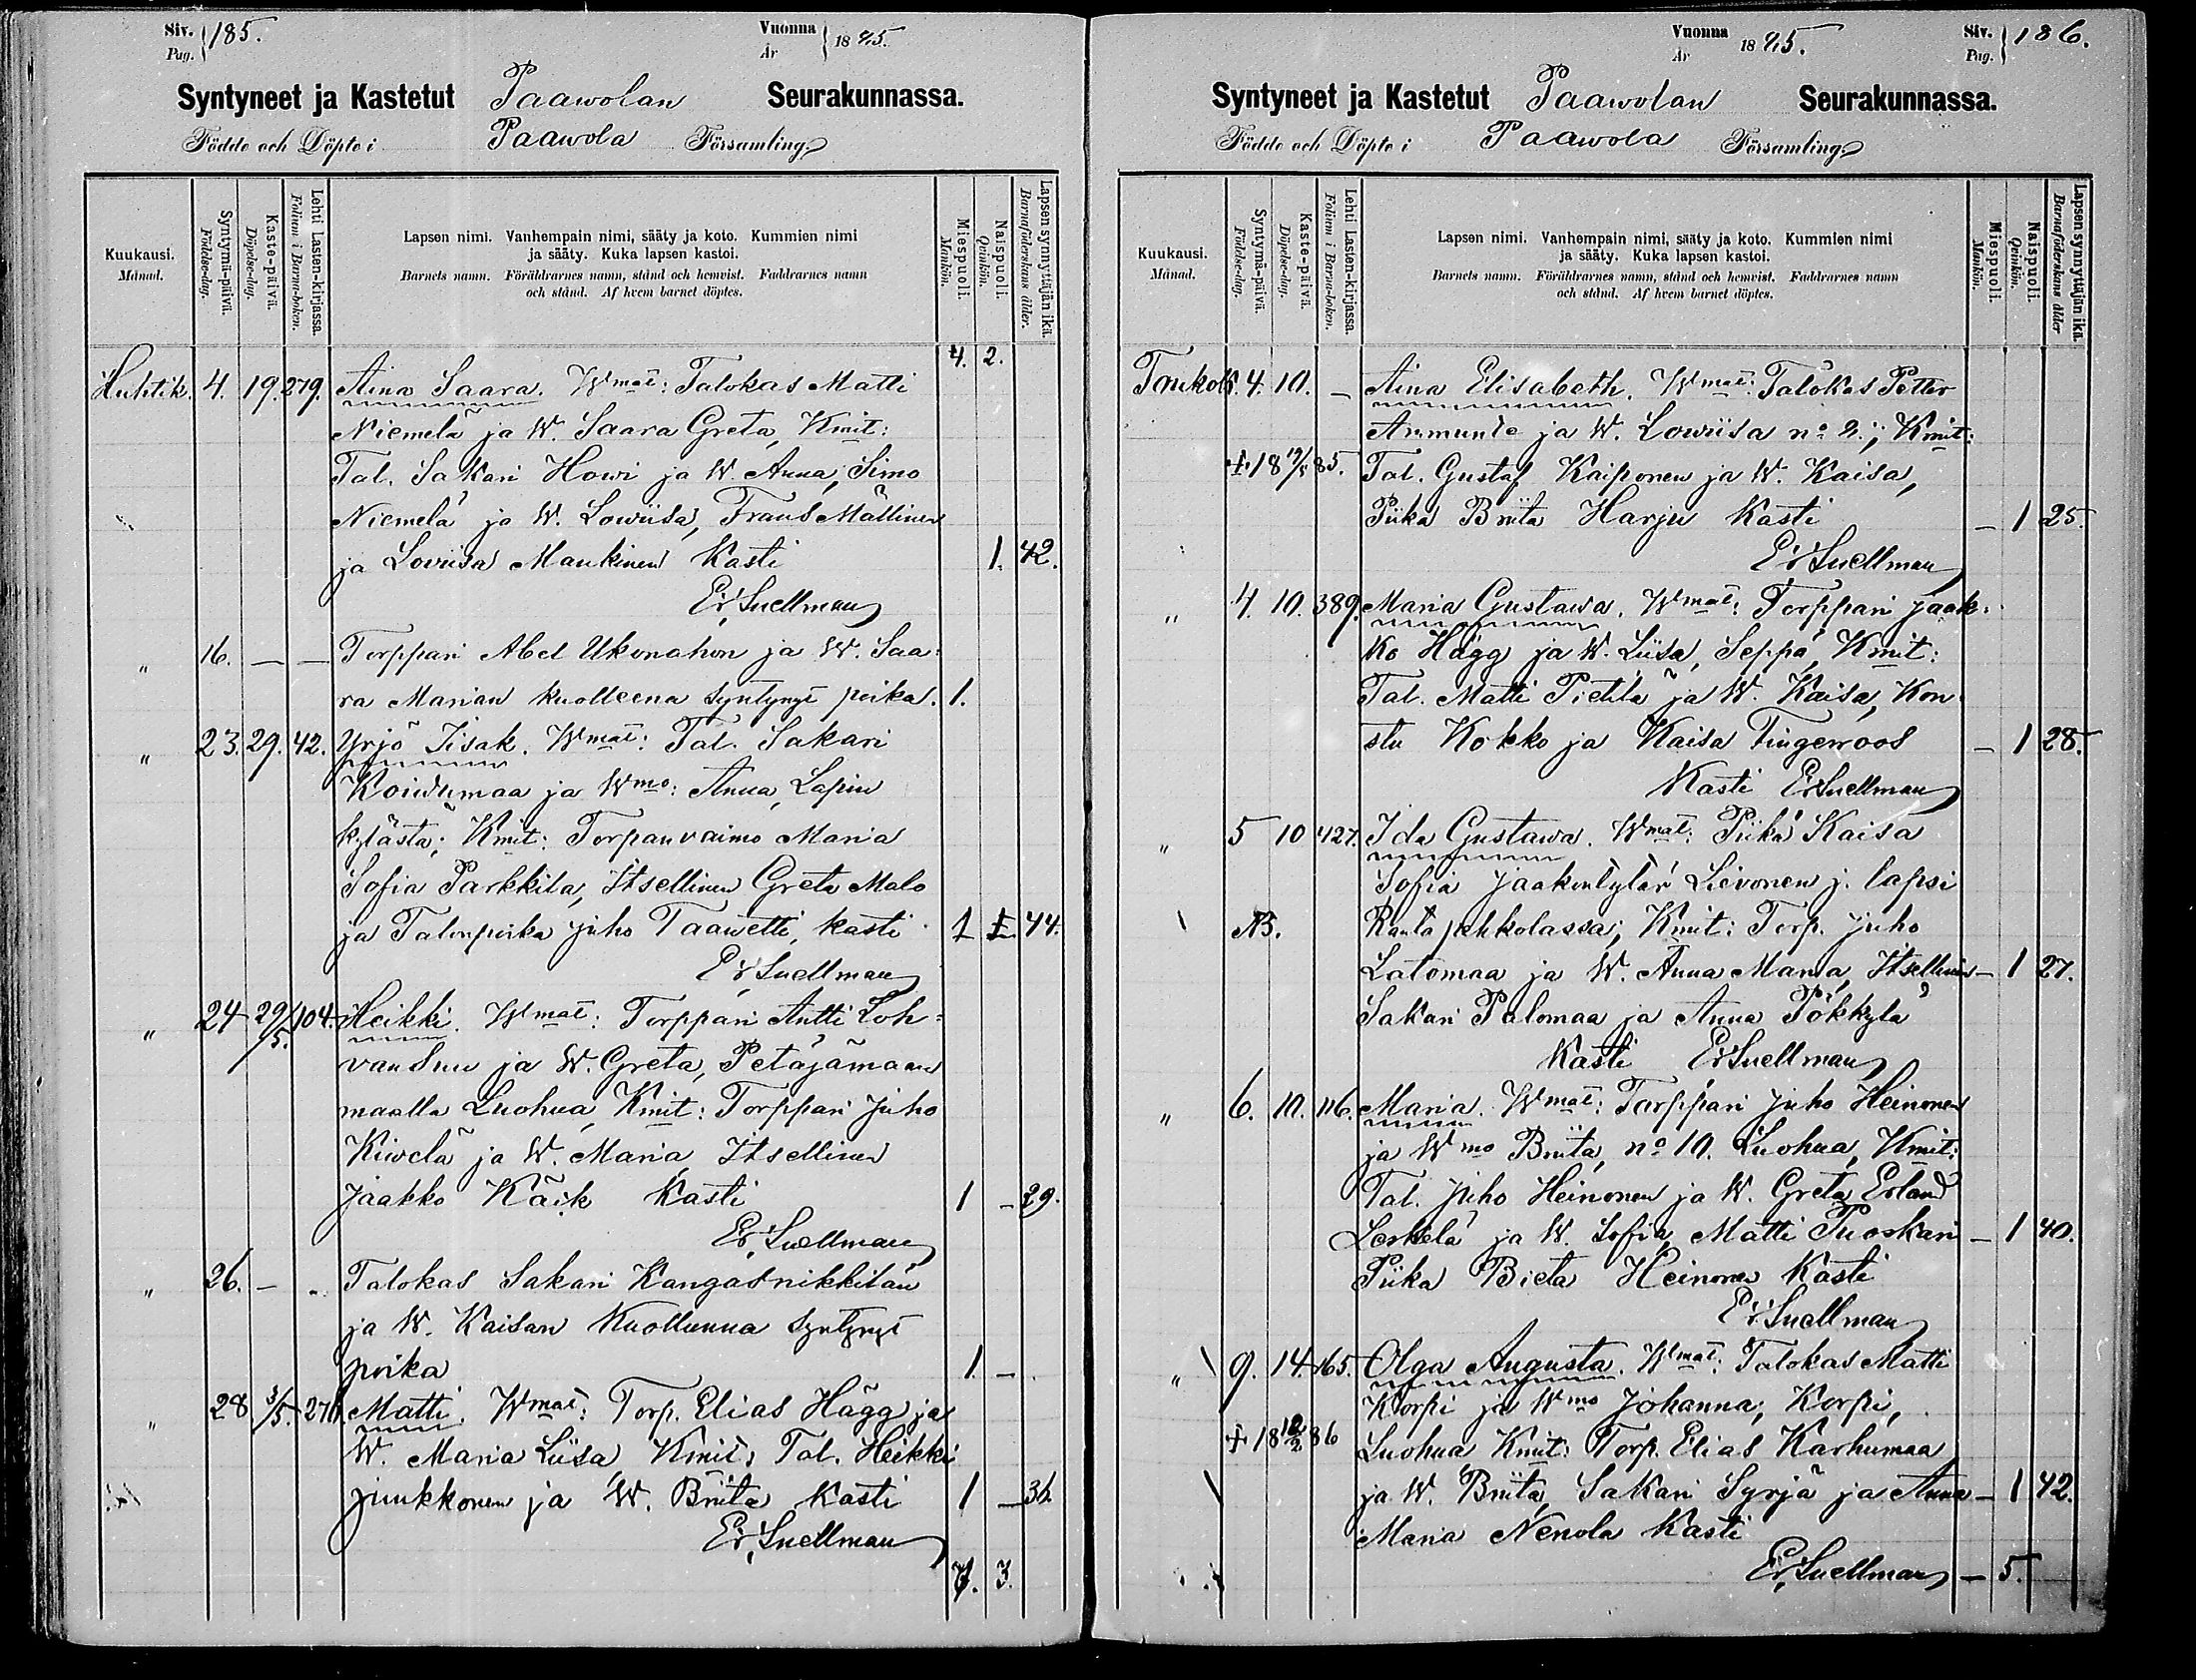 Siv. Pag. 185.
Vuonna År 1885.
Syntyneet ja Kastetut Paawolan Seurakunnassa.
Födde och Döpte i Paawola Församling
Kuukausi. Månad.
Syntymä-päivä. Födelse-dag.
Kaste-päivä. Döpelse-dag.
Lehti Lasten-kirjassa. Folium i Barna-boken.
Lapsen nimi. Vanhempain nimi, sääty ja koto. Kummien nimi
ja sääty. Kuka lapsen kastoi.
Barnets namn. Föräldrarnes namn, stånd och hemvist. Faddrarnes namn
och stånd. Af hvem barnet döptes.
Miespuoli. Mankön.
Naispuoli. Qvinkön.
Lapsen synnyttäjän ikä. Barnaföderskans ålder.
4. 2.
Huhtik. 4. 19. 279. Aina Saara. Wmat: Talokas Matti
Niemelä ja W. Saara Greta, Kmit:
Tal. Sakari Howi ja W. Anna, Simo
Niemelä ja W. Lowiisa, Frans Mällinen
ja Loviisa Maukinen Kasti 1. 42.
Er. Snellman
„ 16. — — Torppari Abel Ukonahon ja W. Saa=
ra Marian kuolleena syntynyt poika. 1.
„ 23. 29. 42. Yrjö Iisak. Wmat: Tal. Sakari
Koidumaa ja Wmo: Anna, Lapin
kylästä; Kmit: Torpanvaimo Maria
Sofia Parkkila, Itsellinen Greta Malo
ja Talonpoika Juho Taawetti, kasti 1 1 44.
Er. Snellman
„ 24 29/5. 104. Heikki. Wmat: Torppari Antti Loh=
vansuu ja W. Greta, Petäjämaan
maalla Luohua, Kmit: Torppari Juho
Kiwelä ja W. Maria, Itsellinen
Jaakko Käik Kasti 1 — 29.
Er. Snellman
„ 26. — - Talokas Sakari Kangasnikkilän
ja W. Kaisan Kuollunna syntynyt
poika 1. —
„ 28 3/5. 276. Matti. Wmat: Torp. Elias Hägg ja
W. Maria Liisa Kmit: Tal. Heikki
Juukkonen ja W. Briita Kasti 1 — 36.
Er. Snellman
7. 3.
Vuonna År 1885.
Siv. Pag. 186.
Syntyneet ja Kastetut Paawolan Seurakunnassa.
Födde och Döpte i Paawola Församling
Kuukausi. Månad.
Syntymä-päivä. Födelse-dag.
Kaste-päivä. Döpelse-dag.
Lehti Lasten-kirjassa. Folium i Barna-boken.
Lapsen nimi. Vanhempain nimi, sääty ja koto. Kummien nimi
ja sääty. Kuka lapsen kastoi.
Barnets namn. Föräldrarnes namn, stånd och hemvist. Faddrarnes namn
och stånd. Af hvem barnet döptes.
Miespuoli. Mankön.
Naispuoli. Qvinkön.
Lapsen synnyttäjän ikä. Barnaföderskans ålder
Toukok. 4. 10. — Aina Elisabeth. Wmat: Talokas Petter
Ammunte ja W. Lowiisa no 2.; Kmit:
+ 18 19/5 85. Tal. Gustaf Kaiponen ja W. Kaisa,
Piika Briita Harju Kasti — 1 25.
Er Snellman
„ 4. 10. 389. Maria Gustawa. Wmat: Torppari Jaak=
ko Hägg ja W. Liisa, Seppä, Kmit:
Tal. Matti Pietilä ja W. Kaisa, Kon
stu Kokko ja Kaisa Fingerroos — 1 28.
Kasti Er Snellman
„ 5 10 427. Ida Gustawa. Wmat: Piika Kaisa
Sofia Jaakontytär Lievonen j. lapsi
NB. Rantapehkolassa; Kmit: Torp. Juho
Latomaa ja W. Anna Maria, Itsellinen — 1 27.
Sakari Palomaa ja Anna Pökkylä
Kasti Er Snellman
„ 6. 10. 116. Maria. Wmat: Torppari Juho Heinonen
ja Wmo Briita, no 10. Luohua, Kmit:
Tal. Juho Heinonen ja W. Greta, Erland
Leskelä ja W. Sofia, Matti Puoskari — 1 40.
Piika Bieta Heinonen Kasti
Er Snellman
„ 9. 14. 165. Olga Augusta. Wmat: Talokas Matti
Korpi ja Wmo Johanna, Korpi,
+ 18 12/2 86 Luohua Kmit: Torp. Elias Karhumaa
ja W. Briita, Sakari Syrjä ja Anna — 1 42.
Maria Nenola Kasti
Er. Snellman — 5.